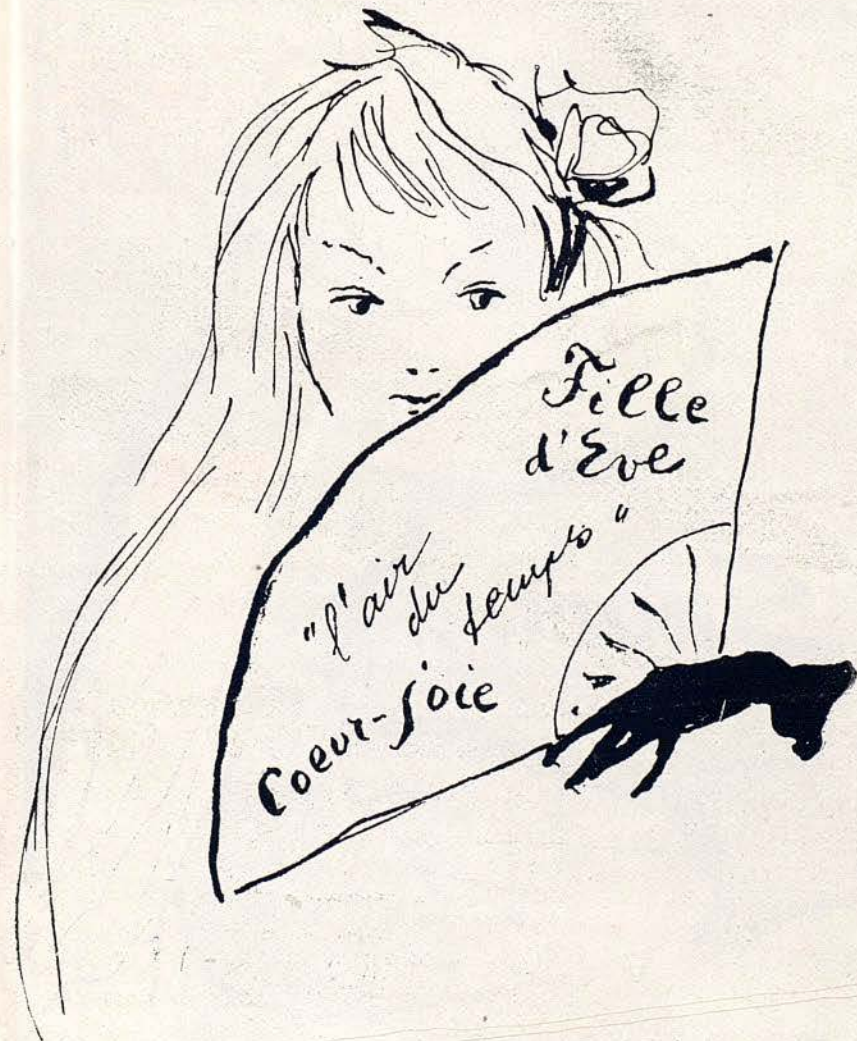 Fille
d'Eve
"l'air
du
temps"
Coeur-Joie